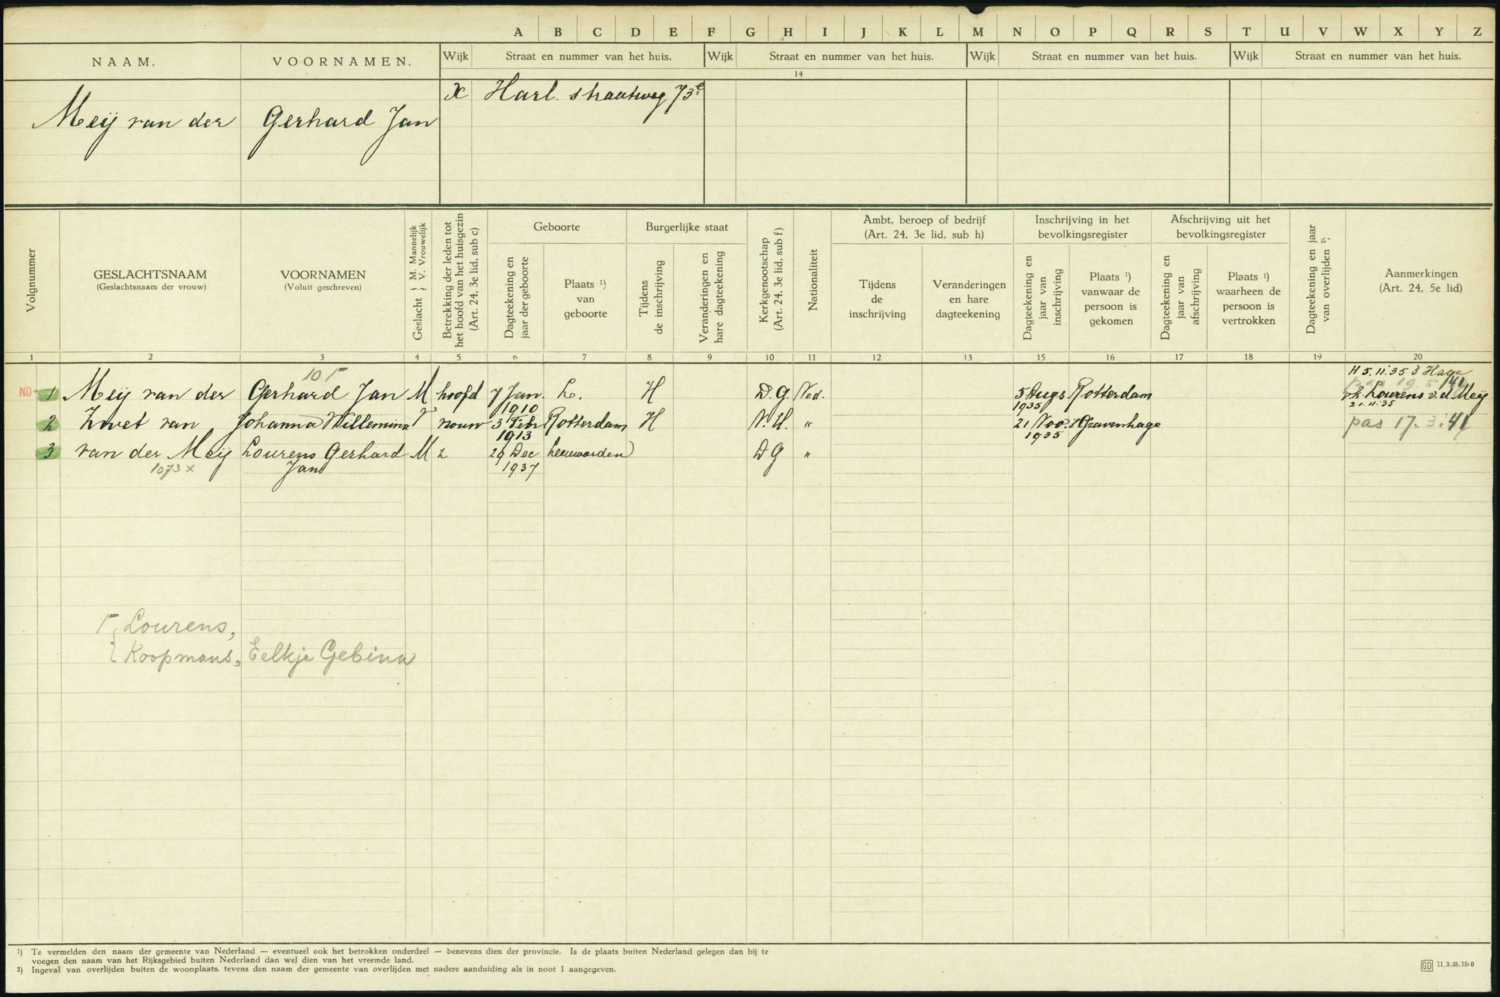 A B C D E F G H I J K L M N O P Q R S T U V W X Y Z
NAAM. VOORNAMEN. Wijk Straat en nummer van het huis. Wijk Straat en nummer van het huis. Wijk Straat en nummer van het huis. Wijk Straat en nummer van het huis.
14
Meij van der Gerhard Jan X Harl. straatweg
Volgnummer
GESLACHTSNAAM
(Geslachtsnaam der vrouw)
VOORNAMEN
(Voluit geschreven)
Geslacht { M. Mannelijk V. Vrouwelijk
Betrekking der leden tot
het hoofd van het huisgezin
(Art. 24, 3e lid, sub c)
Geboorte
Dagteekening en
jaar der geboorte
Plaats ¹)
van
geboorte
Burgerlijke staat
Tijdens
de inschrijving
Veranderingen en
hare dagteekening
Kerkgenootschap
(Art. 24, 3e lid, sub f)
Nationaliteit
Ambt, beroep of bedrijf
(Art. 24, 3e lid, sub h)
Tijdens
de
inschrijving
Veranderingen
en hare
dagteekening
Inschrijving in het
bevolkingsregister
Dagteekening en
jaar van
inschrijving
Plaats ¹)
vanwaar de
persoon is
gekomen
Afschrijving uit het
bevolkingsregister
Dagteekening en
jaar van
afschrijving
Plaats ¹)
waarheen de
persoon is
vertrokken
Dagteekening en jaar
van overlijden ²)
Aanmerkingen
(Art. 24, 5e lid)
1 2 3 4 5 6 7 8 9 10 11 12 13 15 16 17 18 19 20
H 5.11.35 's Hage
1 Meij van der Gerhard Jan M hoofd 7 Jan. 1910 L. H D.G. Ned. 5 Aug 1935 Rotterdam Lourens v.d. Meij
21.11.35
2 Zwet van Johanna Willemina V vrouw 3 Feb 1913 Rotterdam H N.H. " 21 Nov. 1935 's Gravenhage pas 17.3.'41
3 van der Meij Lourens Gerhard Jan M z 29 Dec 1937 Leeuwarden D G "
1073 x
Lourens,
Koopmans, Eelkje Gebina
¹) Te vermelden den naam der gemeente van Nederland — eventueel ook het betrokken onderdeel — benevens dien der provincie. Is de plaats buiten Nederland gelegen dan bij te
voegen den naam van het Rijksgebied buiten Nederland dan wel dien van het vreemde land.
²) Ingeval van overlijden buiten de woonplaats, tevens den naam der gemeente van overlijden met nadere aanduiding als in noot 1 aangegeven.